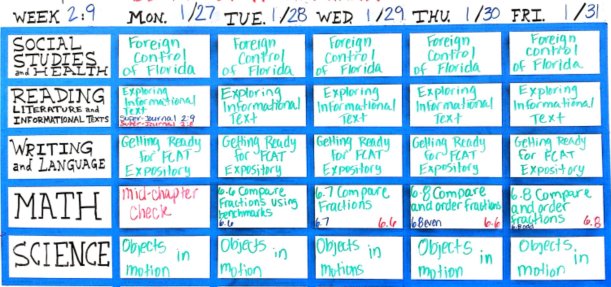 WEEK 2:9 MON. 1/27 TUE. 1/28 WED 1/29 THU. 1/30 FRI. 1/31
SOCIAL
STUDIES
and HEALTH
Foreign
control
of Florida
Foreign
control
of Florida
Foreign
control
of Florida
Foreign
control
of Florida
Foreign
control
of Florida
READING
LITERATURE and
INFORMATIONAL TEXTS
Exploring
Informational
Text
Super-Journal 2:9
Super-Journal 2:8
Exploring
Informational
Text
Exploring
Informational
Text
Exploring
Informational
Text
Exploring
Informational
Text
WRITING
and LANGUAGE
Getting Ready
for FCAT
Expository
Getting Ready
for FCAT
Expository
Getting Ready
for FCAT
Expository
Getting Ready
for FCAT
Expository
Getting Ready
for FCAT
Expository
MATH
mid-chapter
check
6.6 Compare
fractions using
benchmarks
6.6
6.7 Compare
Fractions
6.7 6.6
6.8 Compare
and order fractions
6.8even 6.6
6.8 Compare
and order
fractions
6.8odd 6.8
SCIENCE
Objects in
motion
Objects in
motion
Objects in
motions
Objects in
motion
Objects in
motion